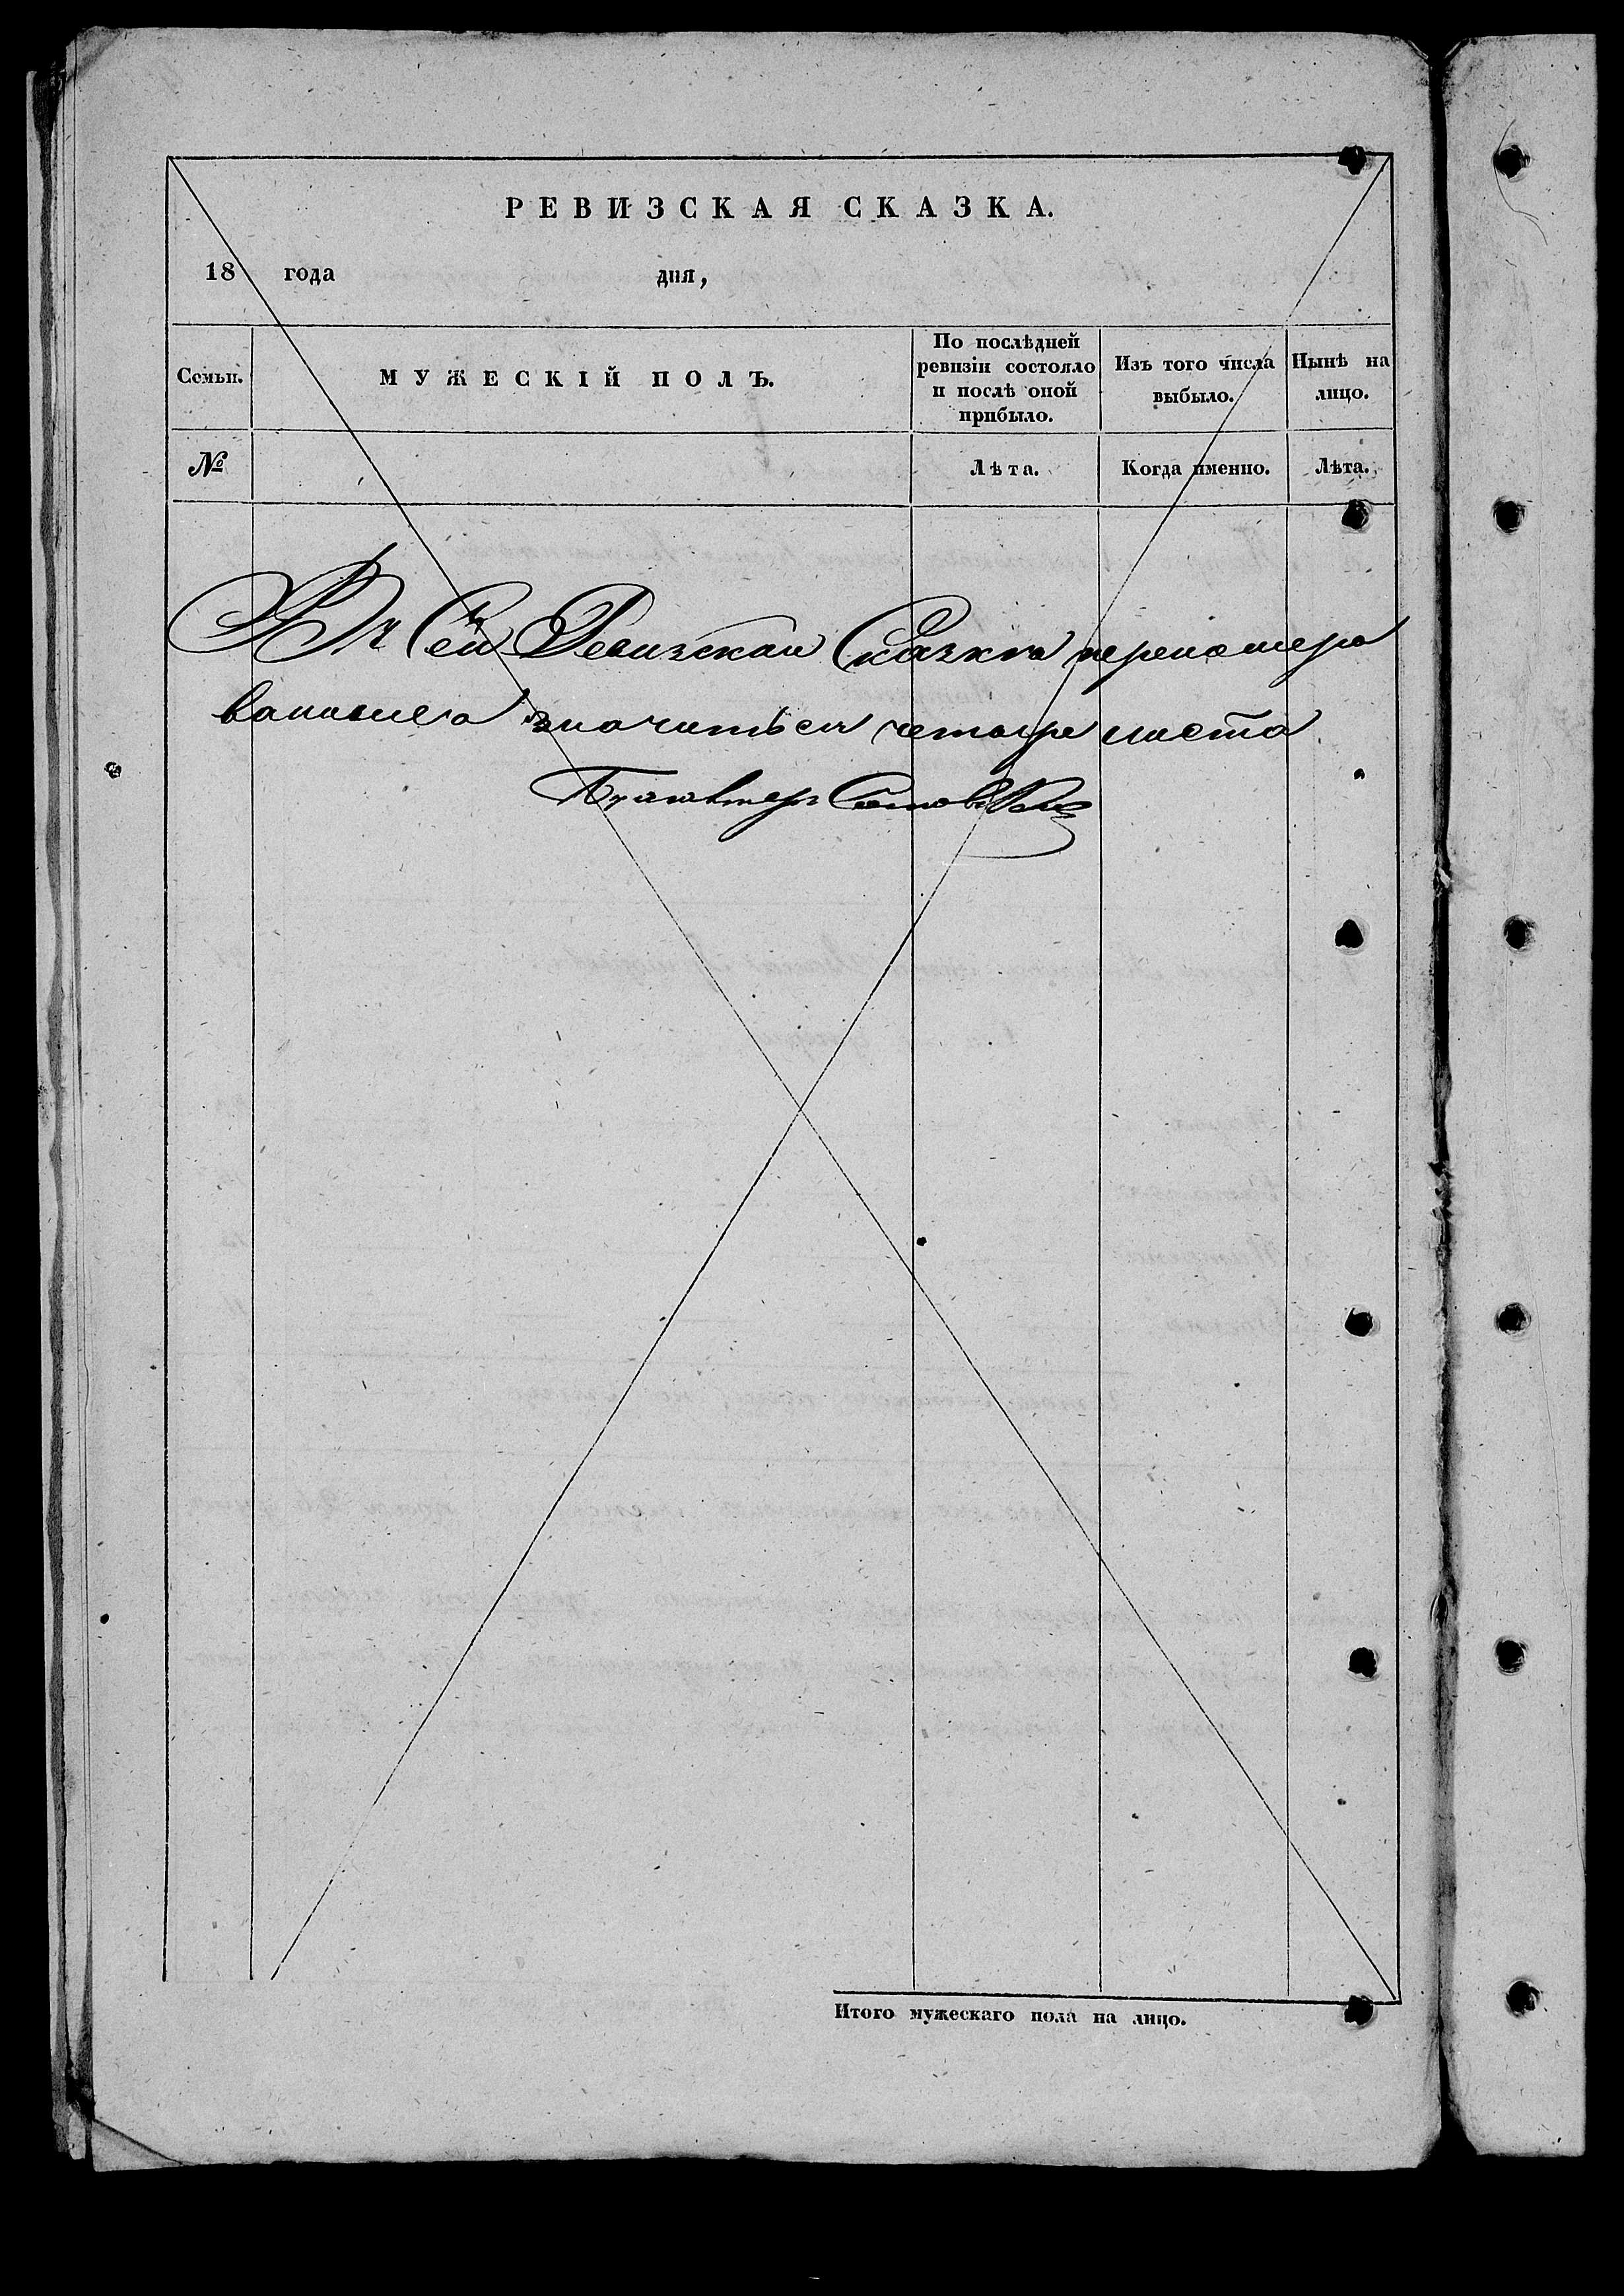 РЕВИЗСКАЯ СКАЗКА.
18 года дня,
Семьи.
МУЖЕСКІЙ ПОЛЪ.
По послѣдней
ревизіи состояло
и послѣ оной
прибыло.
Изъ того числа
выбыло.
Нынѣ на
лицо.
№
Лѣта.
Когда именно.
Лѣта.
Въ Сей Ревизскай Сказки переномеро
ванныхъ значиться четыре листа
Бухгалтеръ
Итого мужескаго пола на лицо.